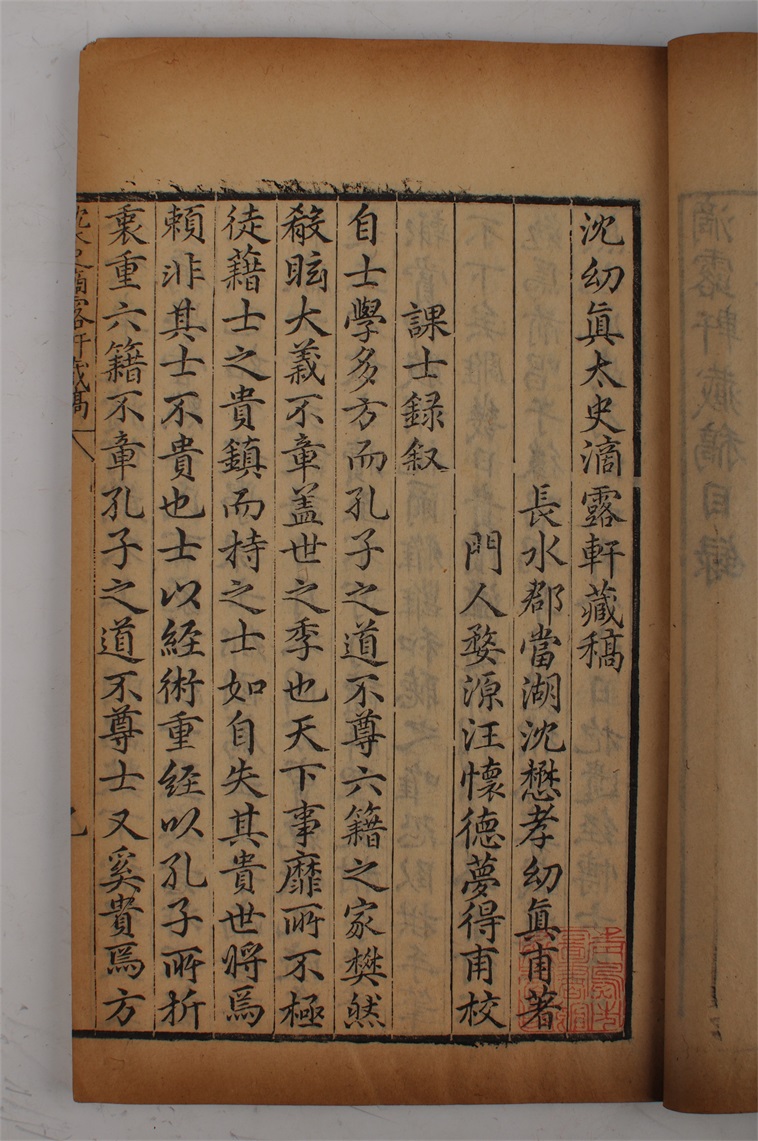 沈幼眞太史滴露軒藏稿
長水郡當湖沈懋孝幼眞甫著
門人婺源汪懷德夢得甫校
課士録叙
自士學多方而孔子之道不尊六籍之家樊然
殽眩大義不章盖世之季也天下事靡所不極
徒藉士之貴鎮而持之士如自失其貴世將焉
頼非其士不貴也士以經術重經以孔子所折
衷重六籍不章孔子之道不尊士又奚貴焉方
滴露軒藏稿
滴露軒藏稿目録